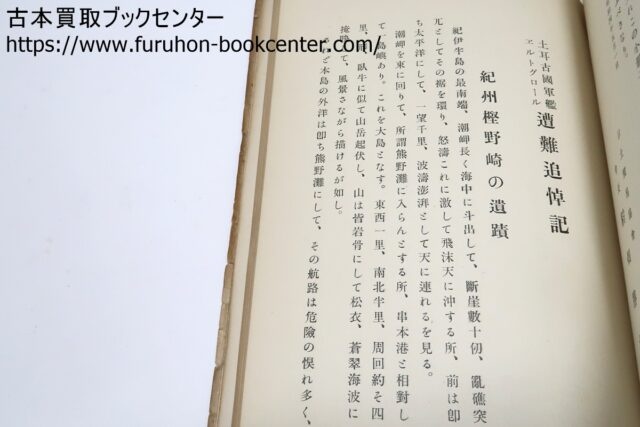 古本買取ブックセンター
https://www.furuhon-bookcenter.com/
土耳古國軍艦
エルトグロール
遭難追悼記
紀州樫野崎の遺蹟
紀伊半島の最南端、潮岬長く海中に斗出して、斷崖數十仞、亂礁突
兀としてその裾を環り、怒濤これに激して飛沫天に沖する所、前は卽
ち太平洋にして、一望千里、波濤澎湃として天に連れるを見る。
潮岬を東に回りて、所謂熊野灘に入らんとする所、串本港と相對し
て一島嶼あり。これを大島となす。東西一里、南北半里、周回約そ四
里、臥牛に似て山岳起伏し、山は皆岩骨にして松衣、蒼翠海波に
掩映して、風景さながら描けるが如し。
されど本島の外洋は卽ち熊野灘にして、その航路は危險の惧れ多く、